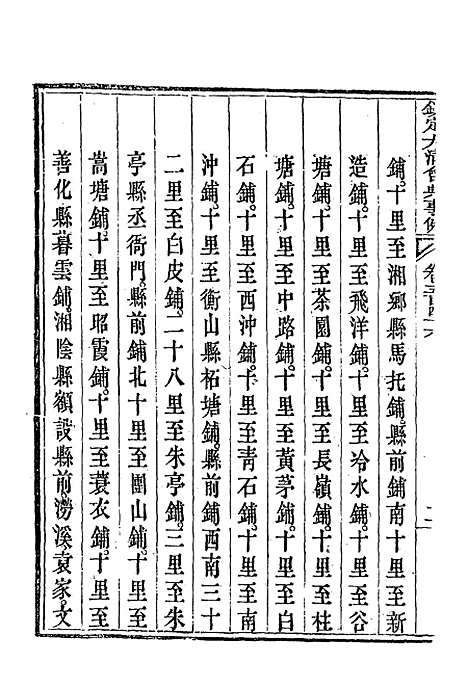 欽定大清會典事例
卷
二
鋪。十里至湘鄉縣馬托鋪。縣前鋪南十里至新
造鋪。十里至飛洋鋪。十里至冷水鋪。十里至谷
塘鋪。十里至茶園鋪。十里至長嶺鋪。十里至桂
塘鋪。十里至中路鋪。十里至黃茅鋪。十里至白
石鋪。十里至西沖鋪。十里至青石鋪。十里至南
沖鋪。十里至衡山縣柘塘鋪。縣前鋪西南三十
二里至白皮鋪。二十八里至朱亭鋪。三里至朱
亭縣丞衙門。縣前鋪北十里至團山鋪。十里至
嵩塘鋪。十里至昭霞鋪。十里至蓑衣鋪。十里至
善化縣暮雲鋪。湘陰縣額設縣前。澇溪。袁家。文